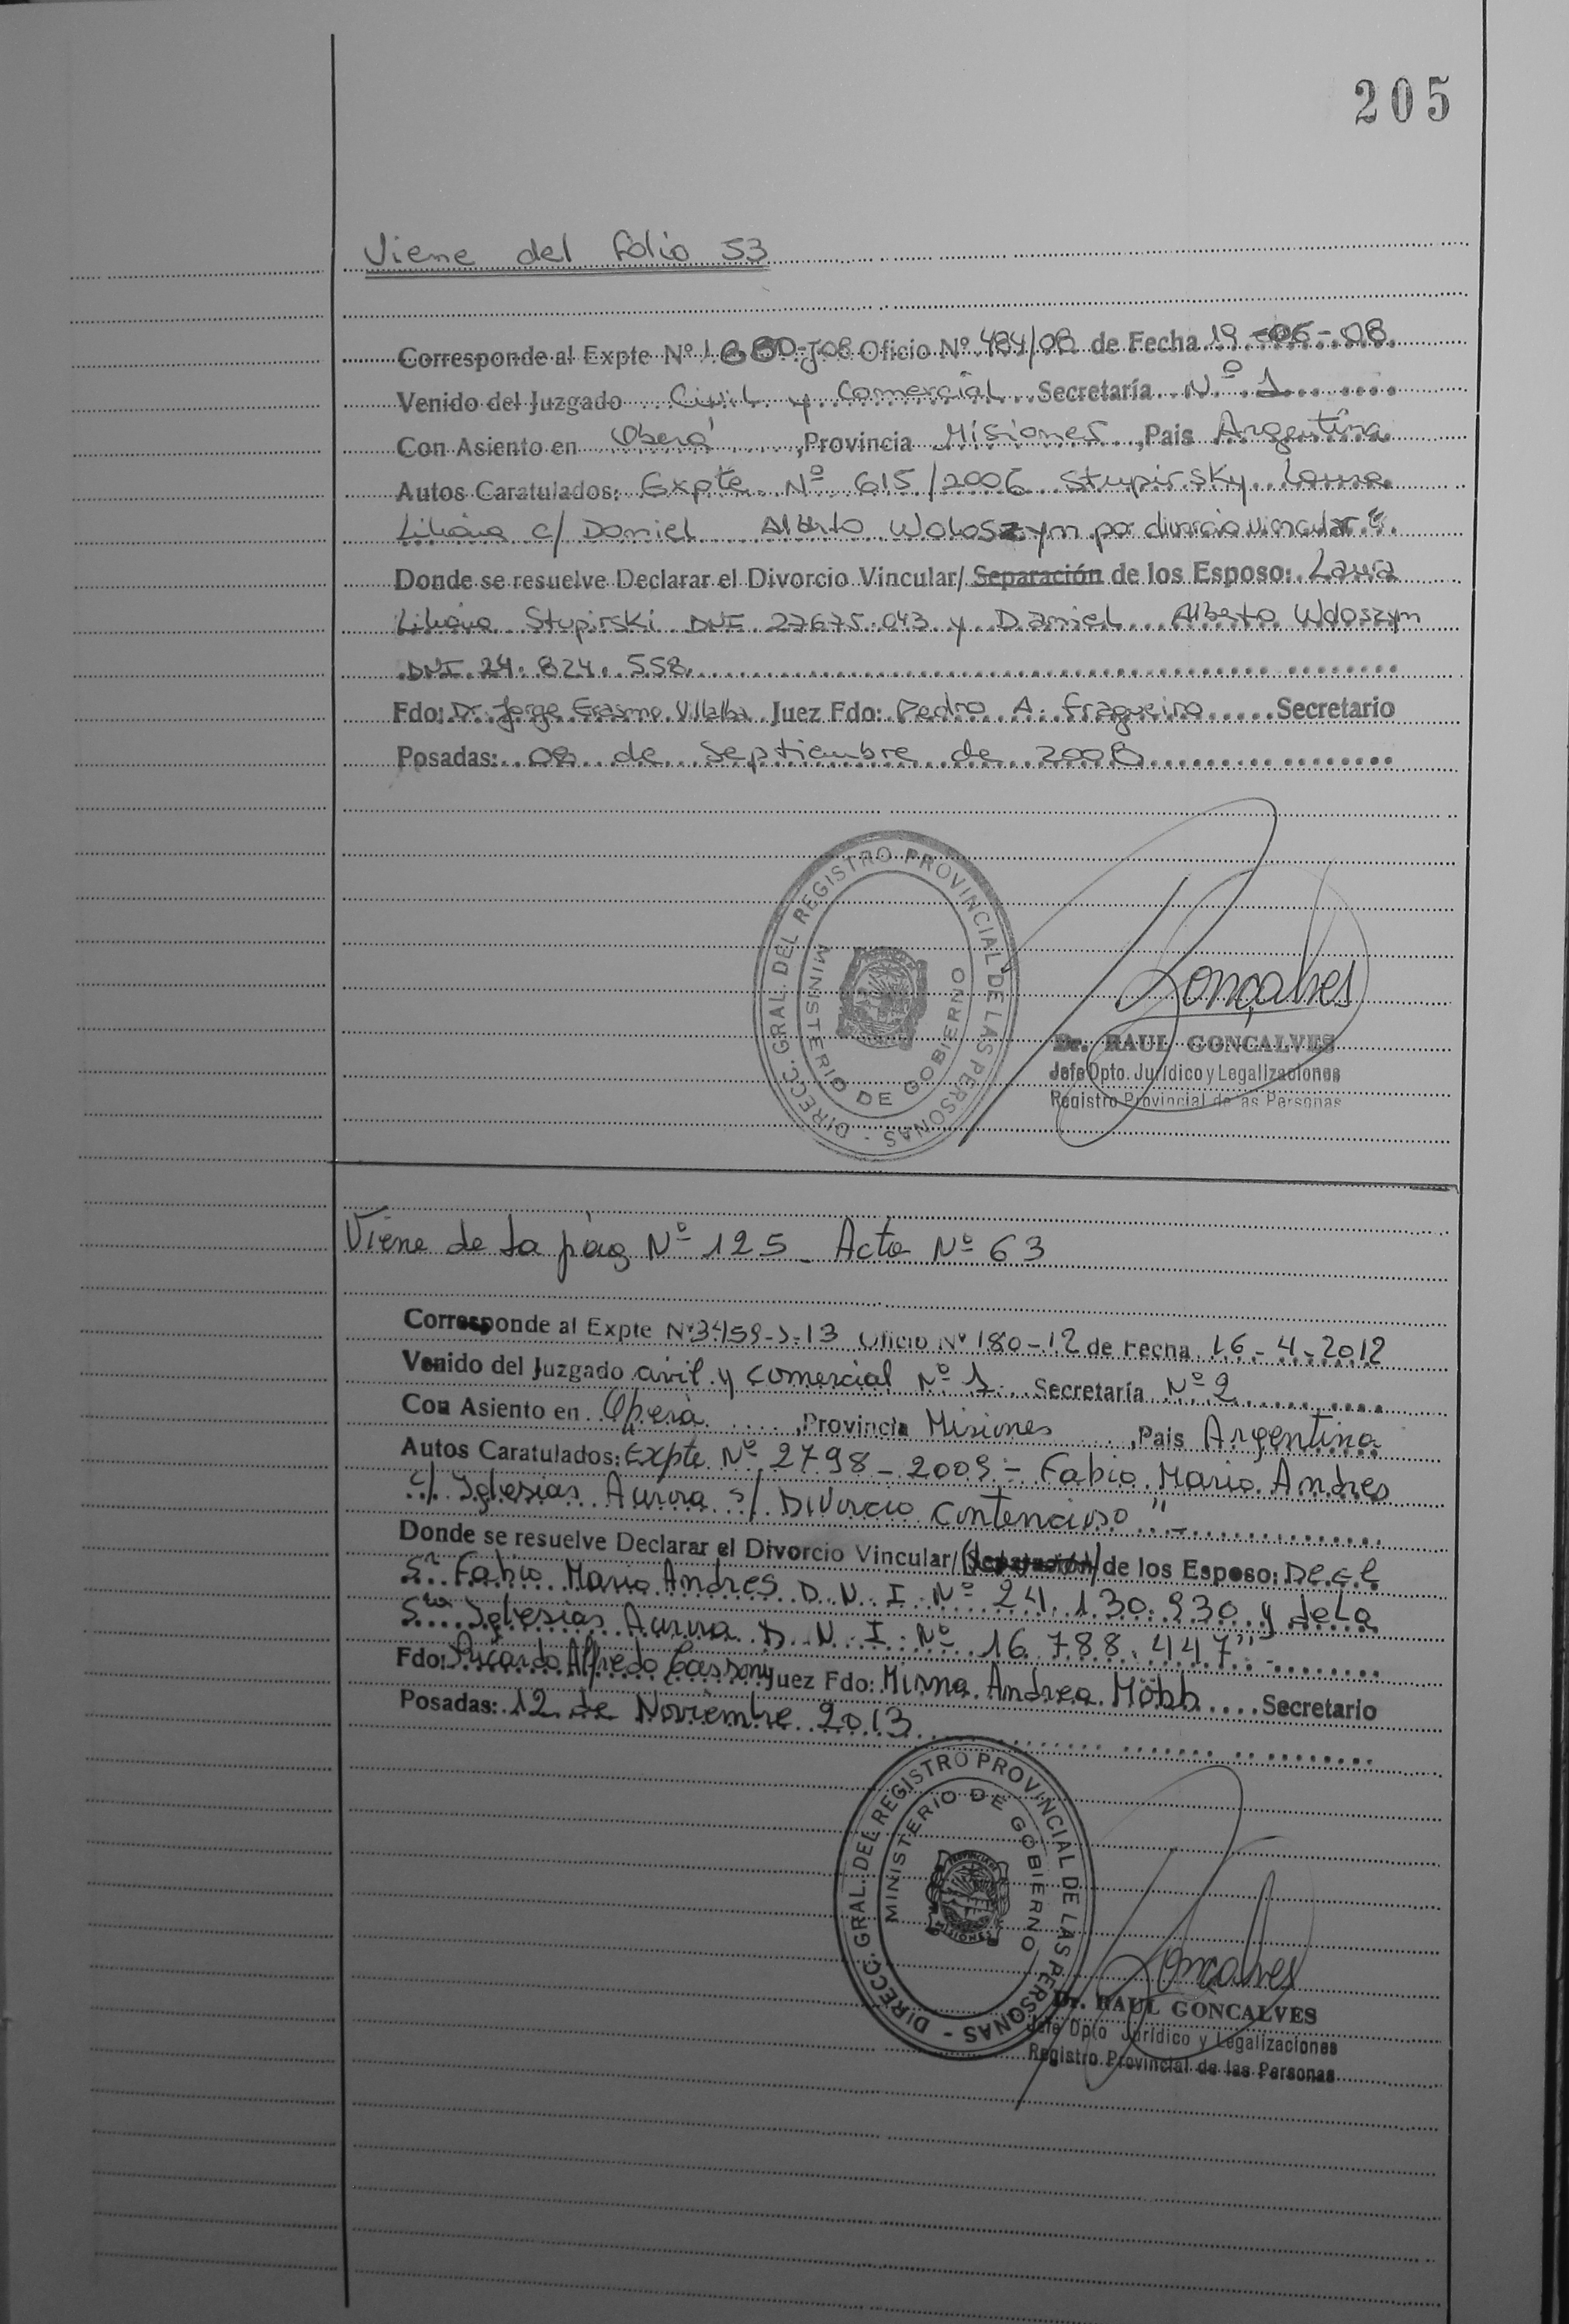 205
Viene del folio 53
Corresponde al Expte Nº 1680-J-08 Oficio Nº 484/08 de Fecha 19-06-08
Venido del Juzgado Civil y Comercial Secretaría Nº 1
Con Asiento en Oberá, Provincia Misiones, Pais Argentina
Autos Caratulados: Expte Nº 615/2006 Stupirsky Laura
Liliana c/ Daniel Alberto Woloszyn por divorcio vincular".
Donde se resuelve Declarar el Divorcio Vincular/ Separación de los Esposo: Laura
Liliana Stupirski DNI 27675.043 y Daniel Alberto Woloszyn
DNI 24.824.558
Fdo: Dr. Jorge Erasmo Villalba Juez Fdo: Pedro A. Fragueiro Secretario
Posadas: 08 de Septiembre de 2008
DIRECC. GRAL. DEL REGISTRO PROVINCIAL DE LAS PERSONAS -
MINISTERIO DE GOBIERNO
Gonçalves
Dr. RAUL GONCALVES
Jefe Dpto. Jurídico y Legalizaciones
Registro Provincial de las Personas
Viene de la pág Nº 125 - Acta Nº 63
Corresponde al Expte Nº 3459-J-13 Oficio Nº 180-12 de Fecha 16-4-2012
Venido del Juzgado civil y Comercial Nº 1 Secretaría Nº 2
Con Asiento en Oberá, Provincia Misiones, Pais Argentina
Autos Caratulados: Expte Nº 2798-2009 - Fabio Mario Andres
c/ Iglesias Aurora s/ Divorcio Contencioso" -
Donde se resuelve Declarar el Divorcio Vincular/ (Separación) de los Esposo: De el
Sr Fabio Mario Andres D.N.I. Nº 24.130.930 y de la
Sra Iglesias Aurora D.N.I. Nº 16.788.447" -
Fdo: Ricardo Alfredo Cassoni Juez Fdo: Mirna Andrea Möbb Secretario
Posadas: 12 de Noviembre 2013
DIRECC. GRAL. DEL REGISTRO PROVINCIAL DE LAS PERSONAS -
MINISTERIO DE GOBIERNO
MISIONES
Gonçalves
Dr. RAUL GONCALVES
Jefe Dpto Jurídico y Legalizaciones
Registro Provincial de las Personas